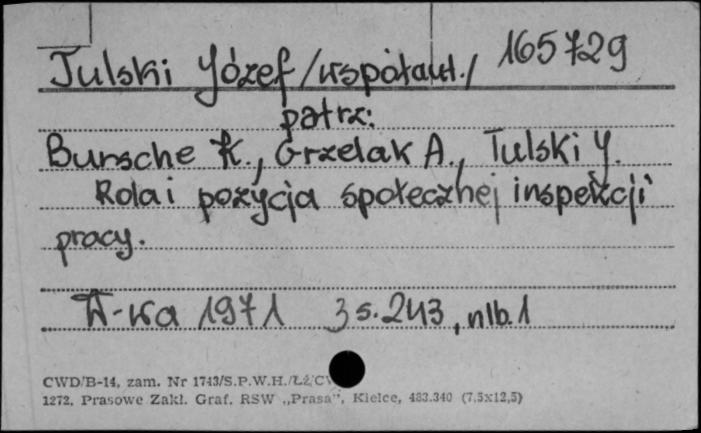 Tulski Józef /współaut./ 165729
patrz:
Bursche K., Grzelak A., Tulski J.
Rola i pozycja społecznej inspekcji
pracy.
W-wa 1971 s. 243, nlb. 1
CWD/B-14, zam. Nr 1743/S.P.W.H./
1272, Prasowe Zakł. Graf. RSW „Prasa”, Kielce, 483.340 (7,5x12,5)